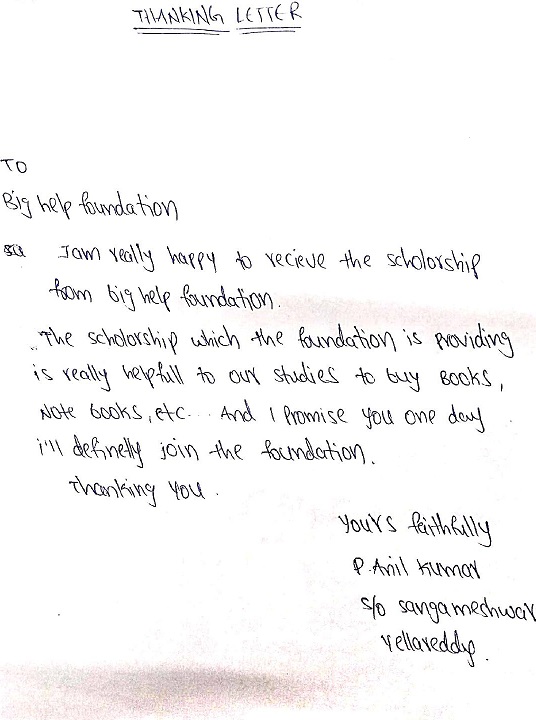 THANKING LETTER
TO
Big help foundation
I am really happy to recieve the scholorship
from big help foundation.
The scholorship which the foundation is providing
is really helpfull to our studies to buy BOOKS,
Note books, etc... And I promise you one day
i'll definetly join the foundation.
Thanking you.
yours faithfully
P. Anil kumar
s/o sangameshwar
Yellareddy.